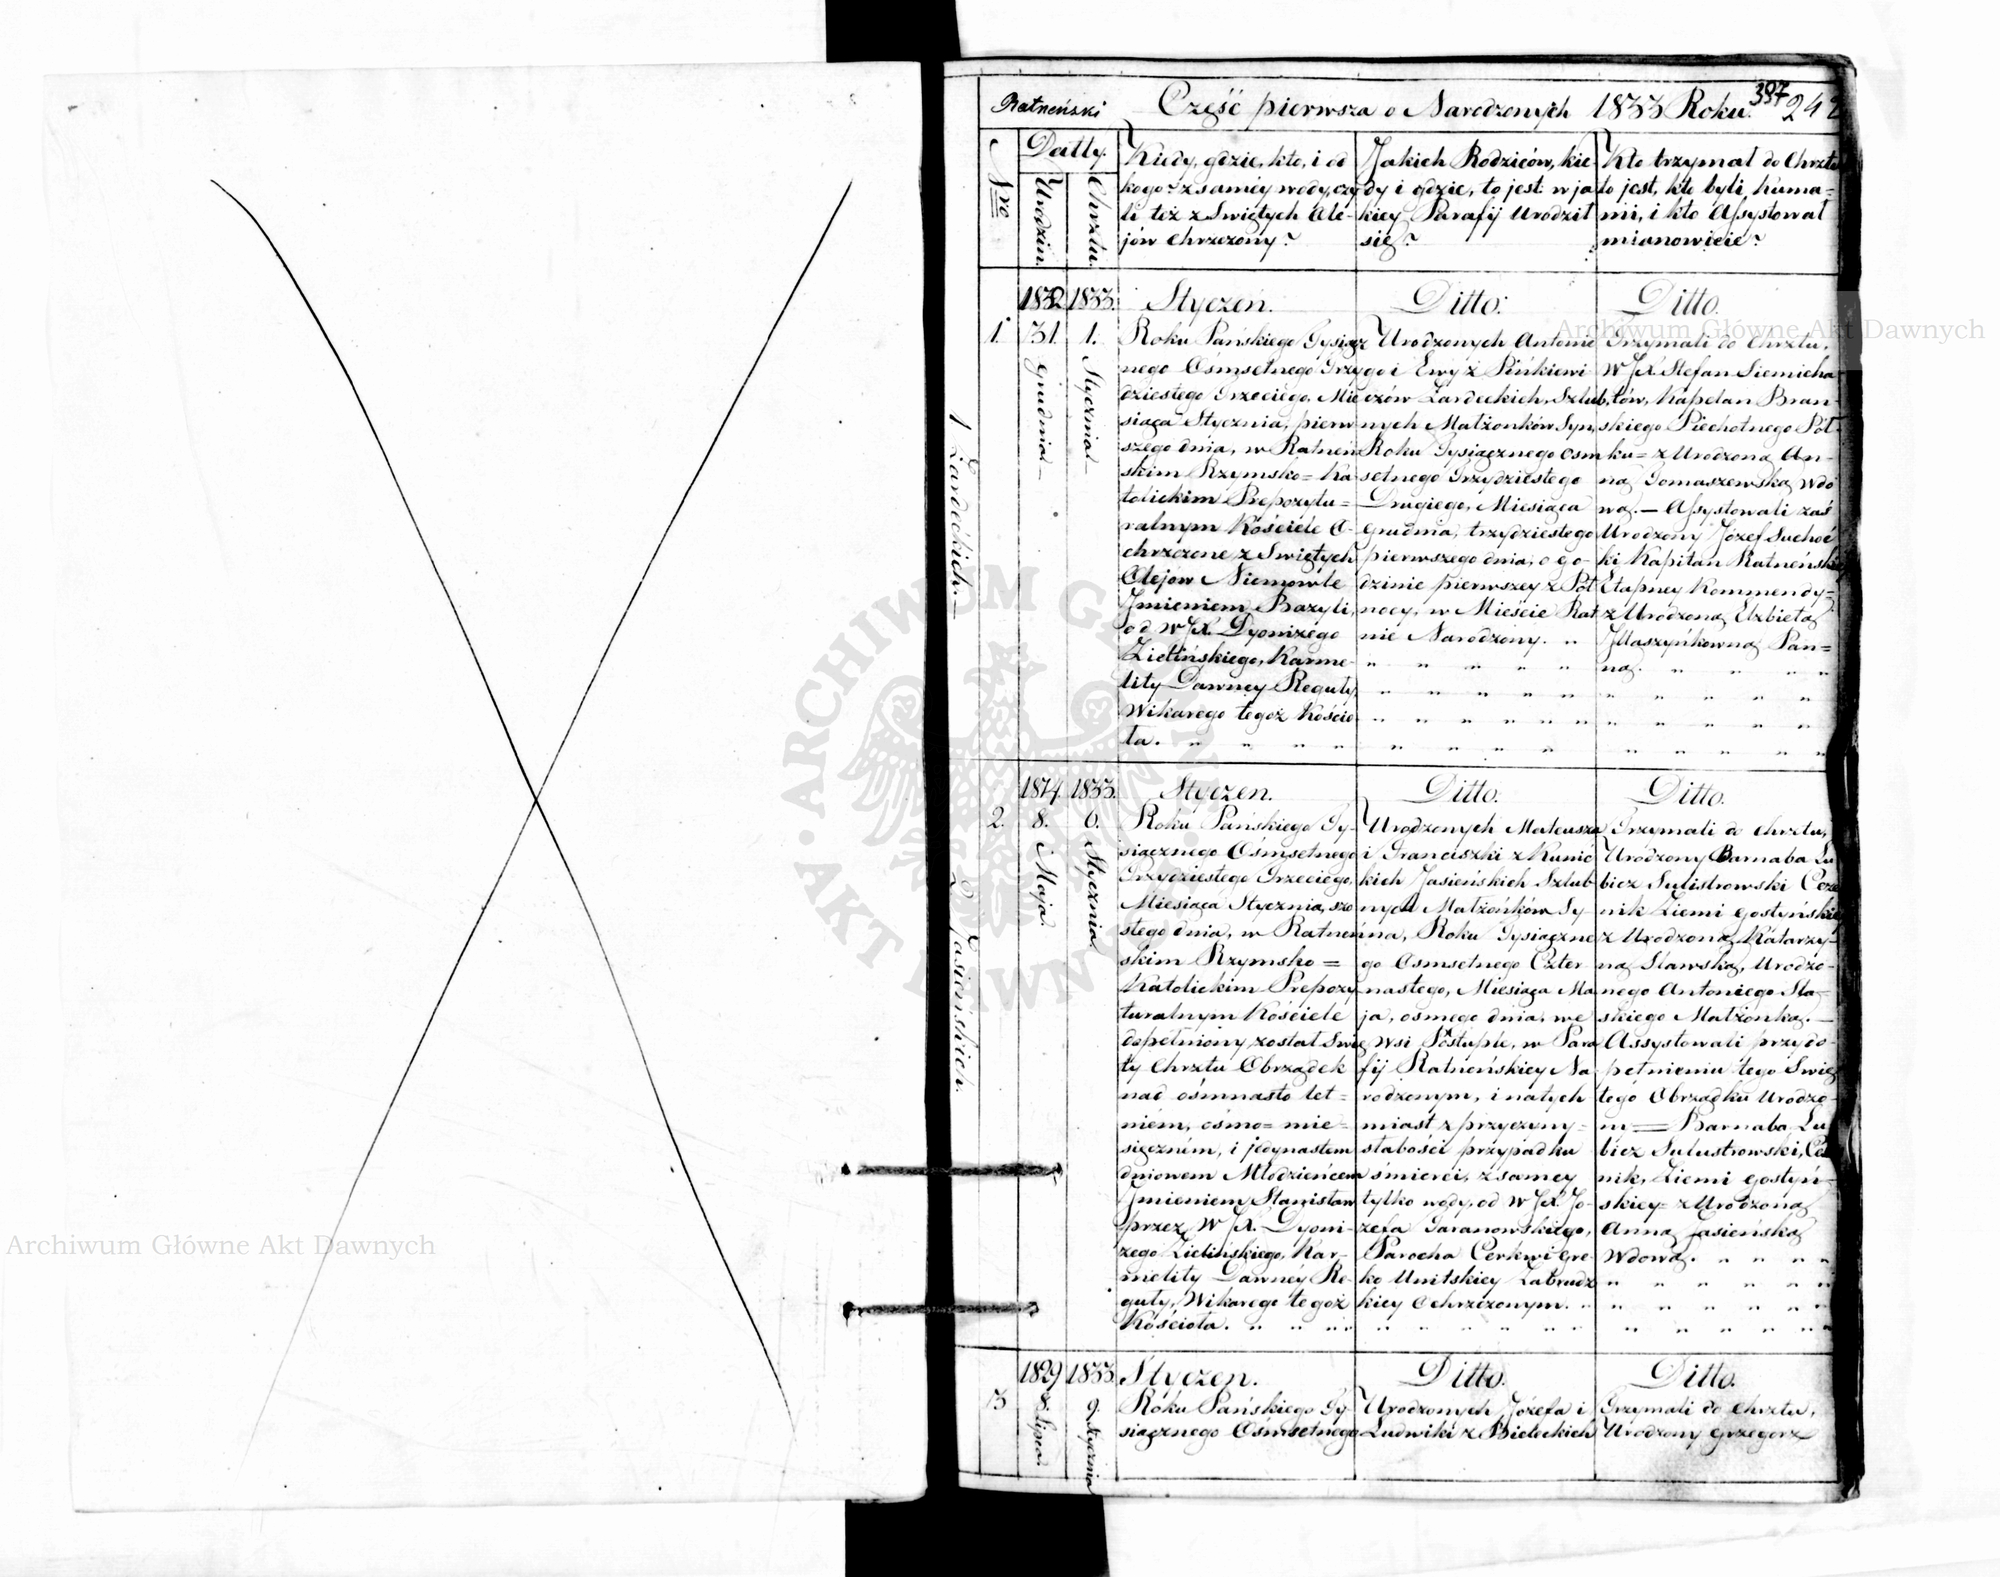 Ratneński Część pierwsza o Narodzonych 1833 Roku. 397 242
Nro
Datty.
Urodzin.
Chrztu.
Kiedy, gdzie, kto, i od
kogo? z saméy wody, czy
li też z Swiętych Ole-
jów chrzczony?
Jakich Rodziców, kie-
dy i gdzie, to jest: w ja
kiey Parafij Urodził
się?
Kto trzymał do Chrztu
to jest, kto byli, kuma-
mi, i kto Assystował
mianowicie?
1 Zardeckich.
1.
1832
31.
Grudnia
1833.
1.
Stycznia
Styczen.
Roku Pańskiego Tysiącz
nego Ośmsetnego Trzy
dziestego Trzeciego, Mie
siąca Stycznia, pierw
szego dnia, w Ratneń
skim Rzymsko=Ka
tolickim Prepozytu=
ralnym Kościele O-
chrzczone z Swiętych
Olejów Niemowle
Imieniem Bazyli,
od WJX. Dyonizego
Zielińskiego, Karme-
lity Dawney Reguły,
Wikarego tegoż Kościo
ła.
Ditto:
Urodzonych Antonie
go i Ewy z Pińkiewi
czów Zardeckich, Szlub
nych Małżonków Syn,
Roku Tysiącznego Ośm
setnego Trzydziestego
Drugiego, Miesiąca
Grudnia, trzydziestego
pierwszego dnia, o go-
dzinie pierwszey z Pół
nocy, w Mieście Rat
nie Narodzony.
Ditto.
Trzymali do Chrztu,
WJX. Stefan Siemicha
tów, Kapelan Bran-
skiego Piechotnego Pół-
ku= z Urodzoną An-
ną Tomaszewską Wdo
wą.— Assystowali zaś
Urodzony Józef Suchoc
ki Kapitan Ratneńskiey
Etapney Kommendy=
z Urodzoną Elzbietą
Pan=
ną.
2 Jasieńskich.
2.
1814.
8.
Maja
1833.
6.
Stycznia
Styczen.
Roku Pańskiego Ty-
siącznego Ośmsetnego
Trzydziestego Trzeciego,
Miesiąca Stycznia, szo
stego dnia, w Ratneń
skim Rzymsko=
Katolickim Prepozy
turalnym Kościele
dopełniony został Swię
ty Chrztu Obrządek
nad ośmnasto let=
niém, ośmo=mie=
sięczném, i jedynastem
dniowem Młodzieńcem
Imieniem Stanisław
przez WJX. Dyoni-
zego Zielińskiego, Kar-
melity Dawnéy Re-
guły, Wikarego tegoż
Kościoła.
Ditto.
Urodzonych Mateusza
i Franciszki z Kunic
kich Jasieńskich Szlub
nych Małżonków Sy-
na, Roku Tysiączne
go Ośmsetnego Czter-
nastego, Miesiąca Ma
ja, osmego dnia, we
Wsi Postuple, w Para
fij Ratneńskiey Na-
rodzonym, i natych
miast z przyczyny-
słabości przypadku
śmierci, z samey
tylko wody, od WJX. Jó-
zefa Taranowskiego,
Parocha Cerkwi Gre-
ko Unitskiey Zabrudz
kiey Ochrzczonym.
Ditto.
Trzymali do Chrztu,
Urodzony Barnaba Lu
bicz Sulistrowski Cze
nik Ziemi Gostyńskiey
z Urodzoną Katarzy-
ną Sławską, Urodzo-
nego Antoniego Sła-
skiego Małżonką.—
Assystowali przy do-
pełnieniu tego Swię
tego Obrządku Urodzo-
ni= Barnaba Lu
bicz Sulustrowski, Cze
nik, Ziemi Gostyń-
skiey= z Urodzoną
Anną Jasieńską
Wdową.
3
1829
8.
Lipca
1833.
9.
Stycznia
Styczen.
Roku Pańskiego Ty-
siącznego Ośmsetnego
Ditto.
Urodzonych Józefa i
Ludwiki z Bieleckich
Ditto.
Trzymali do Chrztu,
Urodzony Grzegorz
Archiwum Główne Akt Dawnych
Archiwum Główne Akt Dawnych
ARCHIWUM GŁÓWNE AKT DAWNYCH